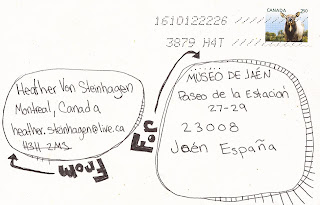 CANADA 250
1610122226
3879 H4T
Heather Von Steinhagen
Montreal, Canada
heather.steinhagen@live.ca
H3H 2M3
From
For:
MUSEO DE JAÉN
Paseo de la Estación
27-29
23008
Jaén España